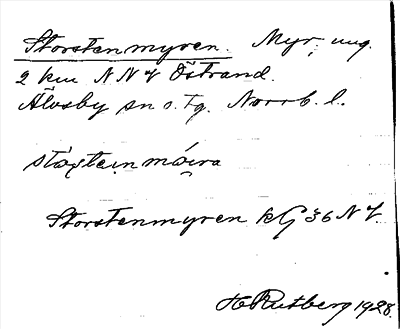 Storstenmyren. Myr; ung.
2 km NNV Östrand.
Älvsby sn o. tg. Norrb. l.
Storstenmyren kG 36 NV.
H Rutberg 1928.